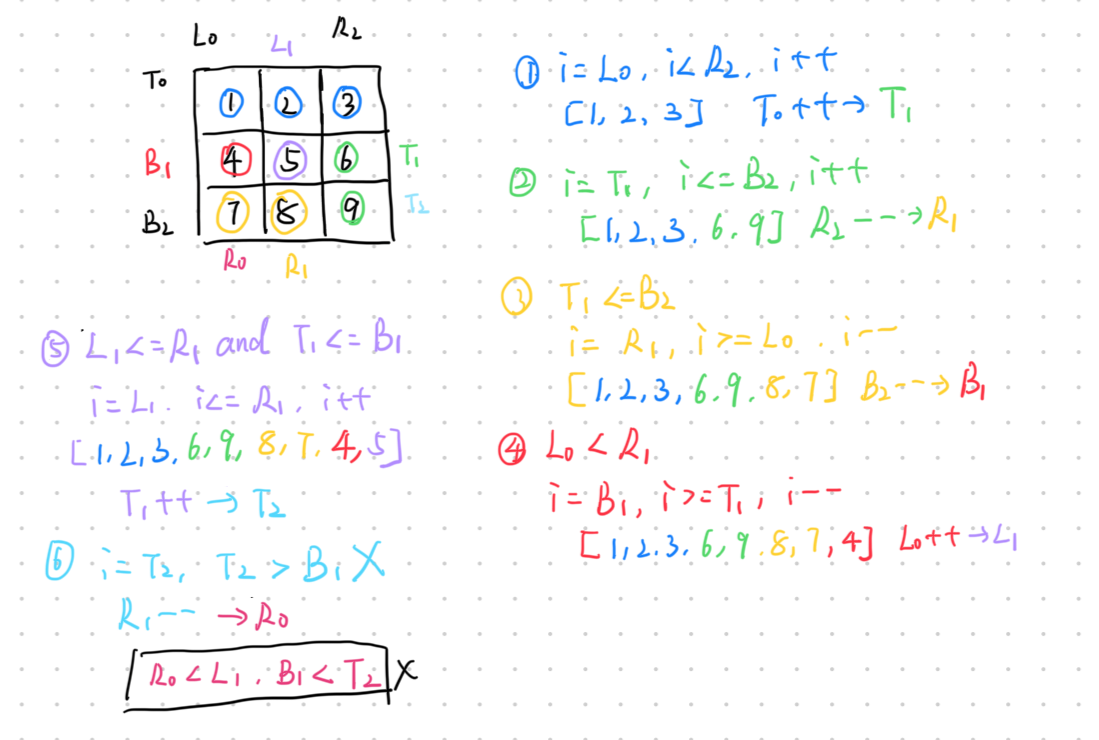 L₀ L₁ R₂
T₀
① ② ③
B₁ ④ ⑤ ⑥ T₁
B₂ ⑦ ⑧ ⑨ T₂
R₀ R₁
① i = L₀, i < R₂, i++
[1, 2, 3] T₀++ → T₁
② i = T₁, i <= B₂, i++
[1, 2, 3, 6, 9] R₂-- → R₁
③ T₁ <= B₂
i = R₁, i >= L₀, i--
[1, 2, 3, 6, 9, 8, 7] B₂-- → B₁
④ L₀ < R₁
i = B₁, i >= T₁, i--
[1, 2, 3, 6, 9, 8, 7, 4] L₀++ → L₁
⑤ L₁ <= R₁ and T₁ <= B₁
i = L₁, i <= R₁, i++
[1, 2, 3, 6, 9, 8, 7, 4, 5]
T₁++ → T₂
⑥ i = T₂, T₂ > B₁ X
R₁-- → R₀
R₀ < L₁, B₁ < T₂ X